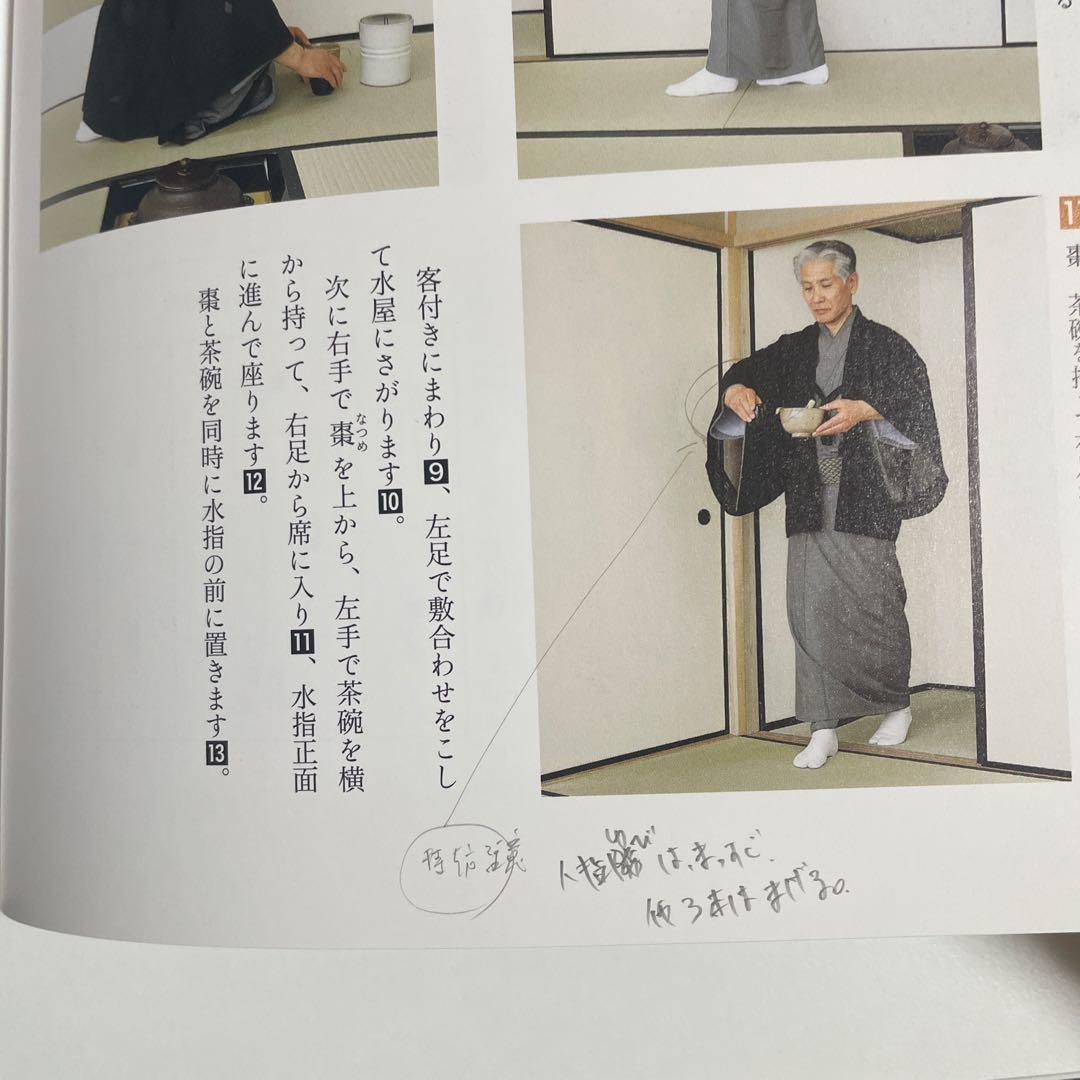 客付きにまわり9、左足で敷合わせをこし
て水屋にさがります10。
次に右手で棗を上から、左手で茶碗を横
なつめ
から持って、右足から席に入り11、水指正面
に進んで座ります12。
棗と茶碗を同時に水指の前に置きます13。
は、まっすぐ、
3本はまげる。